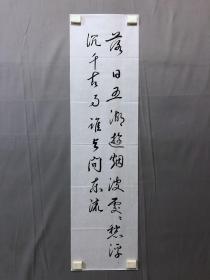 落日五湖游烟波处々愁浮
沉千古事谁与问东流